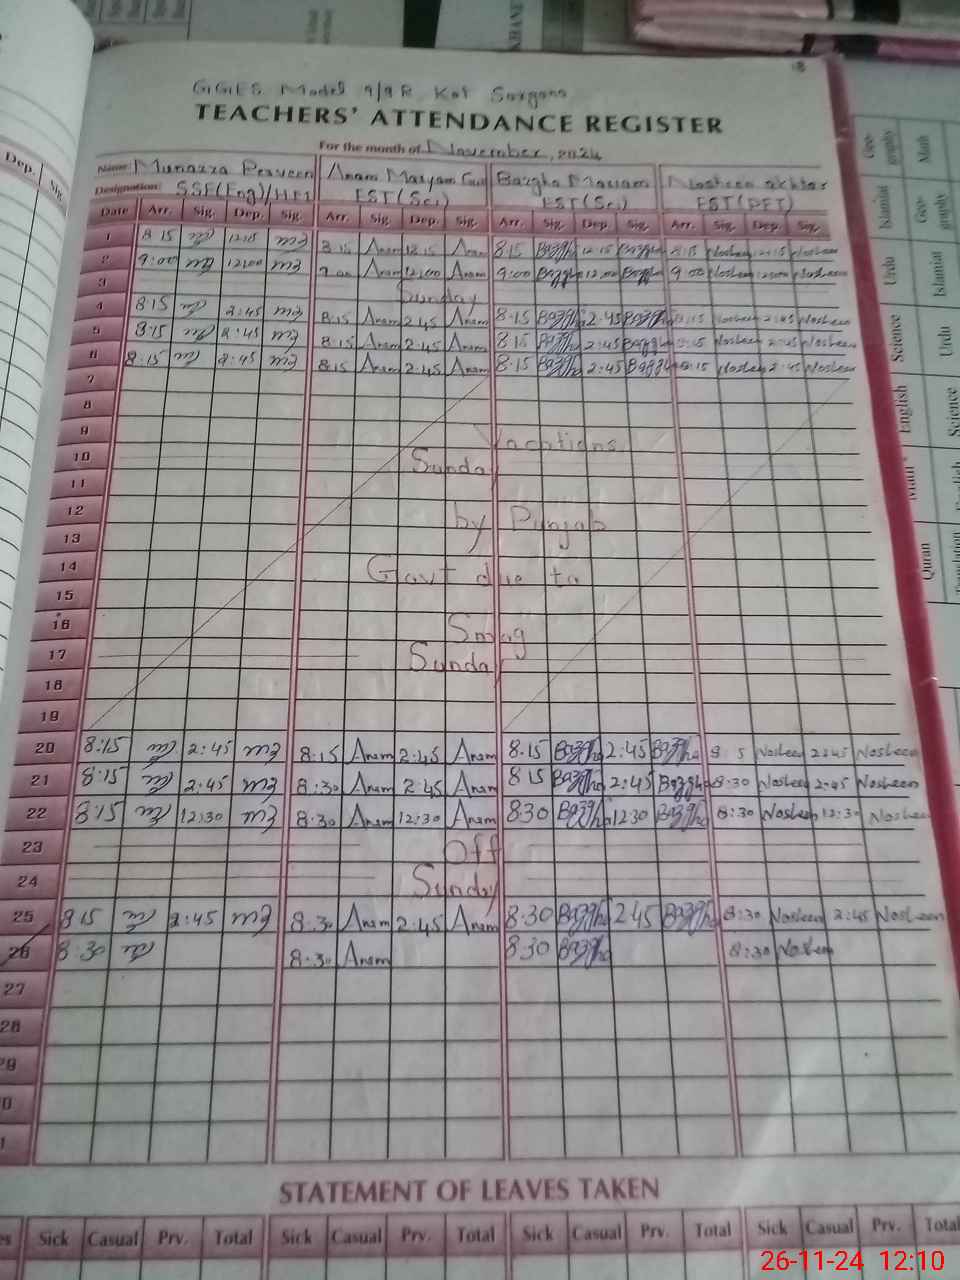 GGES Model 9/9R Kot Sargana
TEACHERS' ATTENDANCE REGISTER
For the month of November, 2024
Name: Munazza Perveen Anam Maryam Bazgha Maryam Nosheen akhtar
Designation: SSE(Eng)/HM EST(Sci) EST(Sci) EST(PET)
Date Arr. Sig. Dep. Sig. Arr. Sig. Dep. Sig. Arr. Sig. Dep. Sig. Arr. Sig. Dep. Sig.
1 8 15 12:15 8 15 Anam 12.15 Anam 8.15 Bazgha 12 15 Bazgha 8:15 Nosheen 12:15 Nosheen
2 9:00 12:00 9.00 Anam 12:00 Anam 9:00 Bazgha 12.00 Bazgha 9 00 Nosheen 12:00 Nosheen
3 Sunday
4 8:15 2:45 8:15 Anam 2.45 Anam 8.15 Bazgha 2.45 Bazgha 8:15 Nosheen 2:45 Nosheen
5 8:15 2:45 8.15 Anam 2.45 Anam 8 15 Bazgha 2:45 Bazgha 8:15 Nosheen 2:45 Nosheen
6 8:15 2:45 8.15 Anam 2.45 Anam 8.15 Bazgha 2.45 Bazgha 8:15 Nosheen 2:45 Nosheen
7
8
9 Vacations
10 Sunday
11
12 by Punjab
13
14 Govt due to
15
16 Smog
17 Sunday
18
19
20 8:15 2:45 8:15 Anam 2:45 Anam 8.15 Bazgha 2:45 Bazgha 8 5 Nosheen 2:45 Nosheen
21 8:15 2:45 8:30 Anam 2.45 Anam 8 15 Bazgha 2:45 Bazgha 8:30 Nosheen 2:45 Nosheen
22 8:15 12:30 8:30 Anam 12:30 Anam 8:30 Bazgha 12:30 Bazgha 8:30 Nosheen 12:30 Nosheen
23 Off
24 Sunday
25 8 15 2:45 8:30 Anam 2:45 Anam 8:30 Bazgha 2 45 Bazgha 8:30 Nosheen 2:45 Nosheen
26 8:30 8:30 Anam 8:30 Bazgha 8:30 Nosheen
27
28
29
0
1
STATEMENT OF LEAVES TAKEN
es Sick Casual Prv. Total Sick Casual Prv. Total Sick Casual Prv. Total Sick Casual Prv. Total
26-11-24 12:10
Dep. Sig.
Geography Math
Islamiat Geography
Urdu Islamiat
Science Urdu
English Science
Math English
Quran Translation